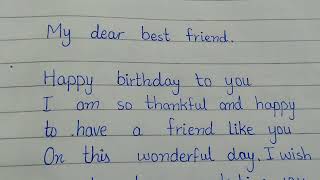 My dear best friend.
Happy birthday to you
I am so thankful and happy
to have a friend like you
On this wonderful day. I wish